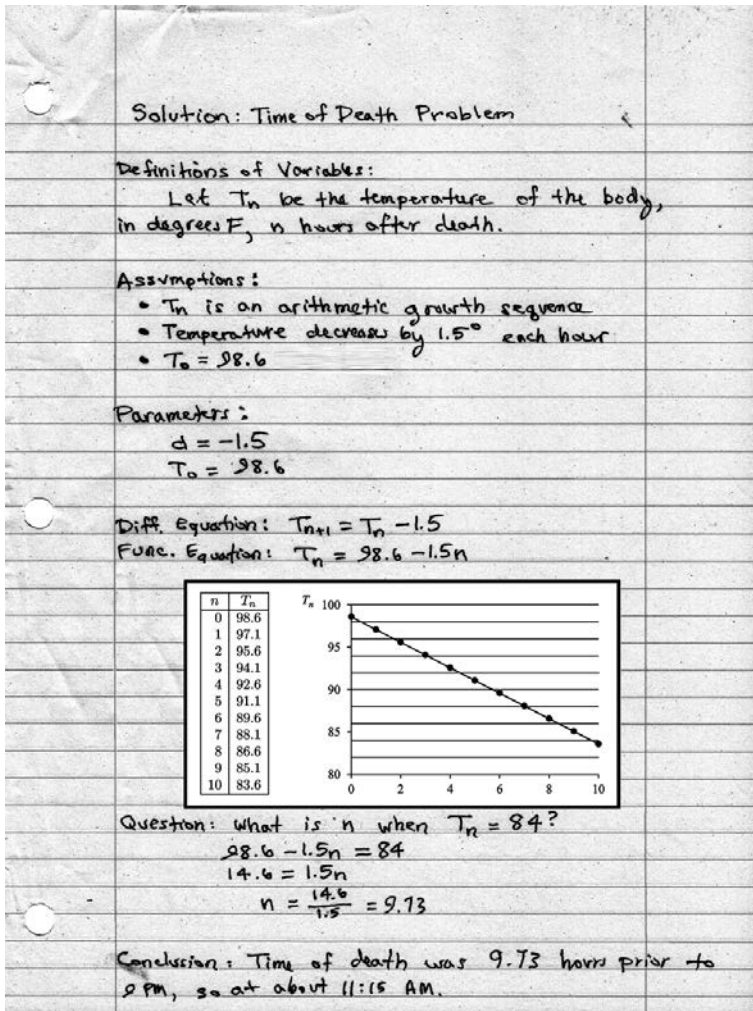 Solution: Time of Death Problem
Definitions of Variables:
Let Tn be the temperature of the body,
in degrees F, n hours after death.
Assumptions:
• Tn is an arithmetic growth sequence
• Temperature decreases by 1.5° each hour
• T0 = 98.6
Parameters:
d = -1.5
T0 = 98.6
Diff. Equation: Tn+1 = Tn - 1.5
Func. Equation: Tn = 98.6 - 1.5n
n Tn
0 98.6
1 97.1
2 95.6
3 94.1
4 92.6
5 91.1
6 89.6
7 88.1
8 86.6
9 85.1
10 83.6
Tn 100
95
90
85
80
0 2 4 6 8 10
Question: What is n when Tn = 84?
98.6 - 1.5n = 84
14.6 = 1.5n
n = 14.6/1.5 = 9.73
Conclusion: Time of death was 9.73 hours prior to
9 PM, so at about 11:15 AM.